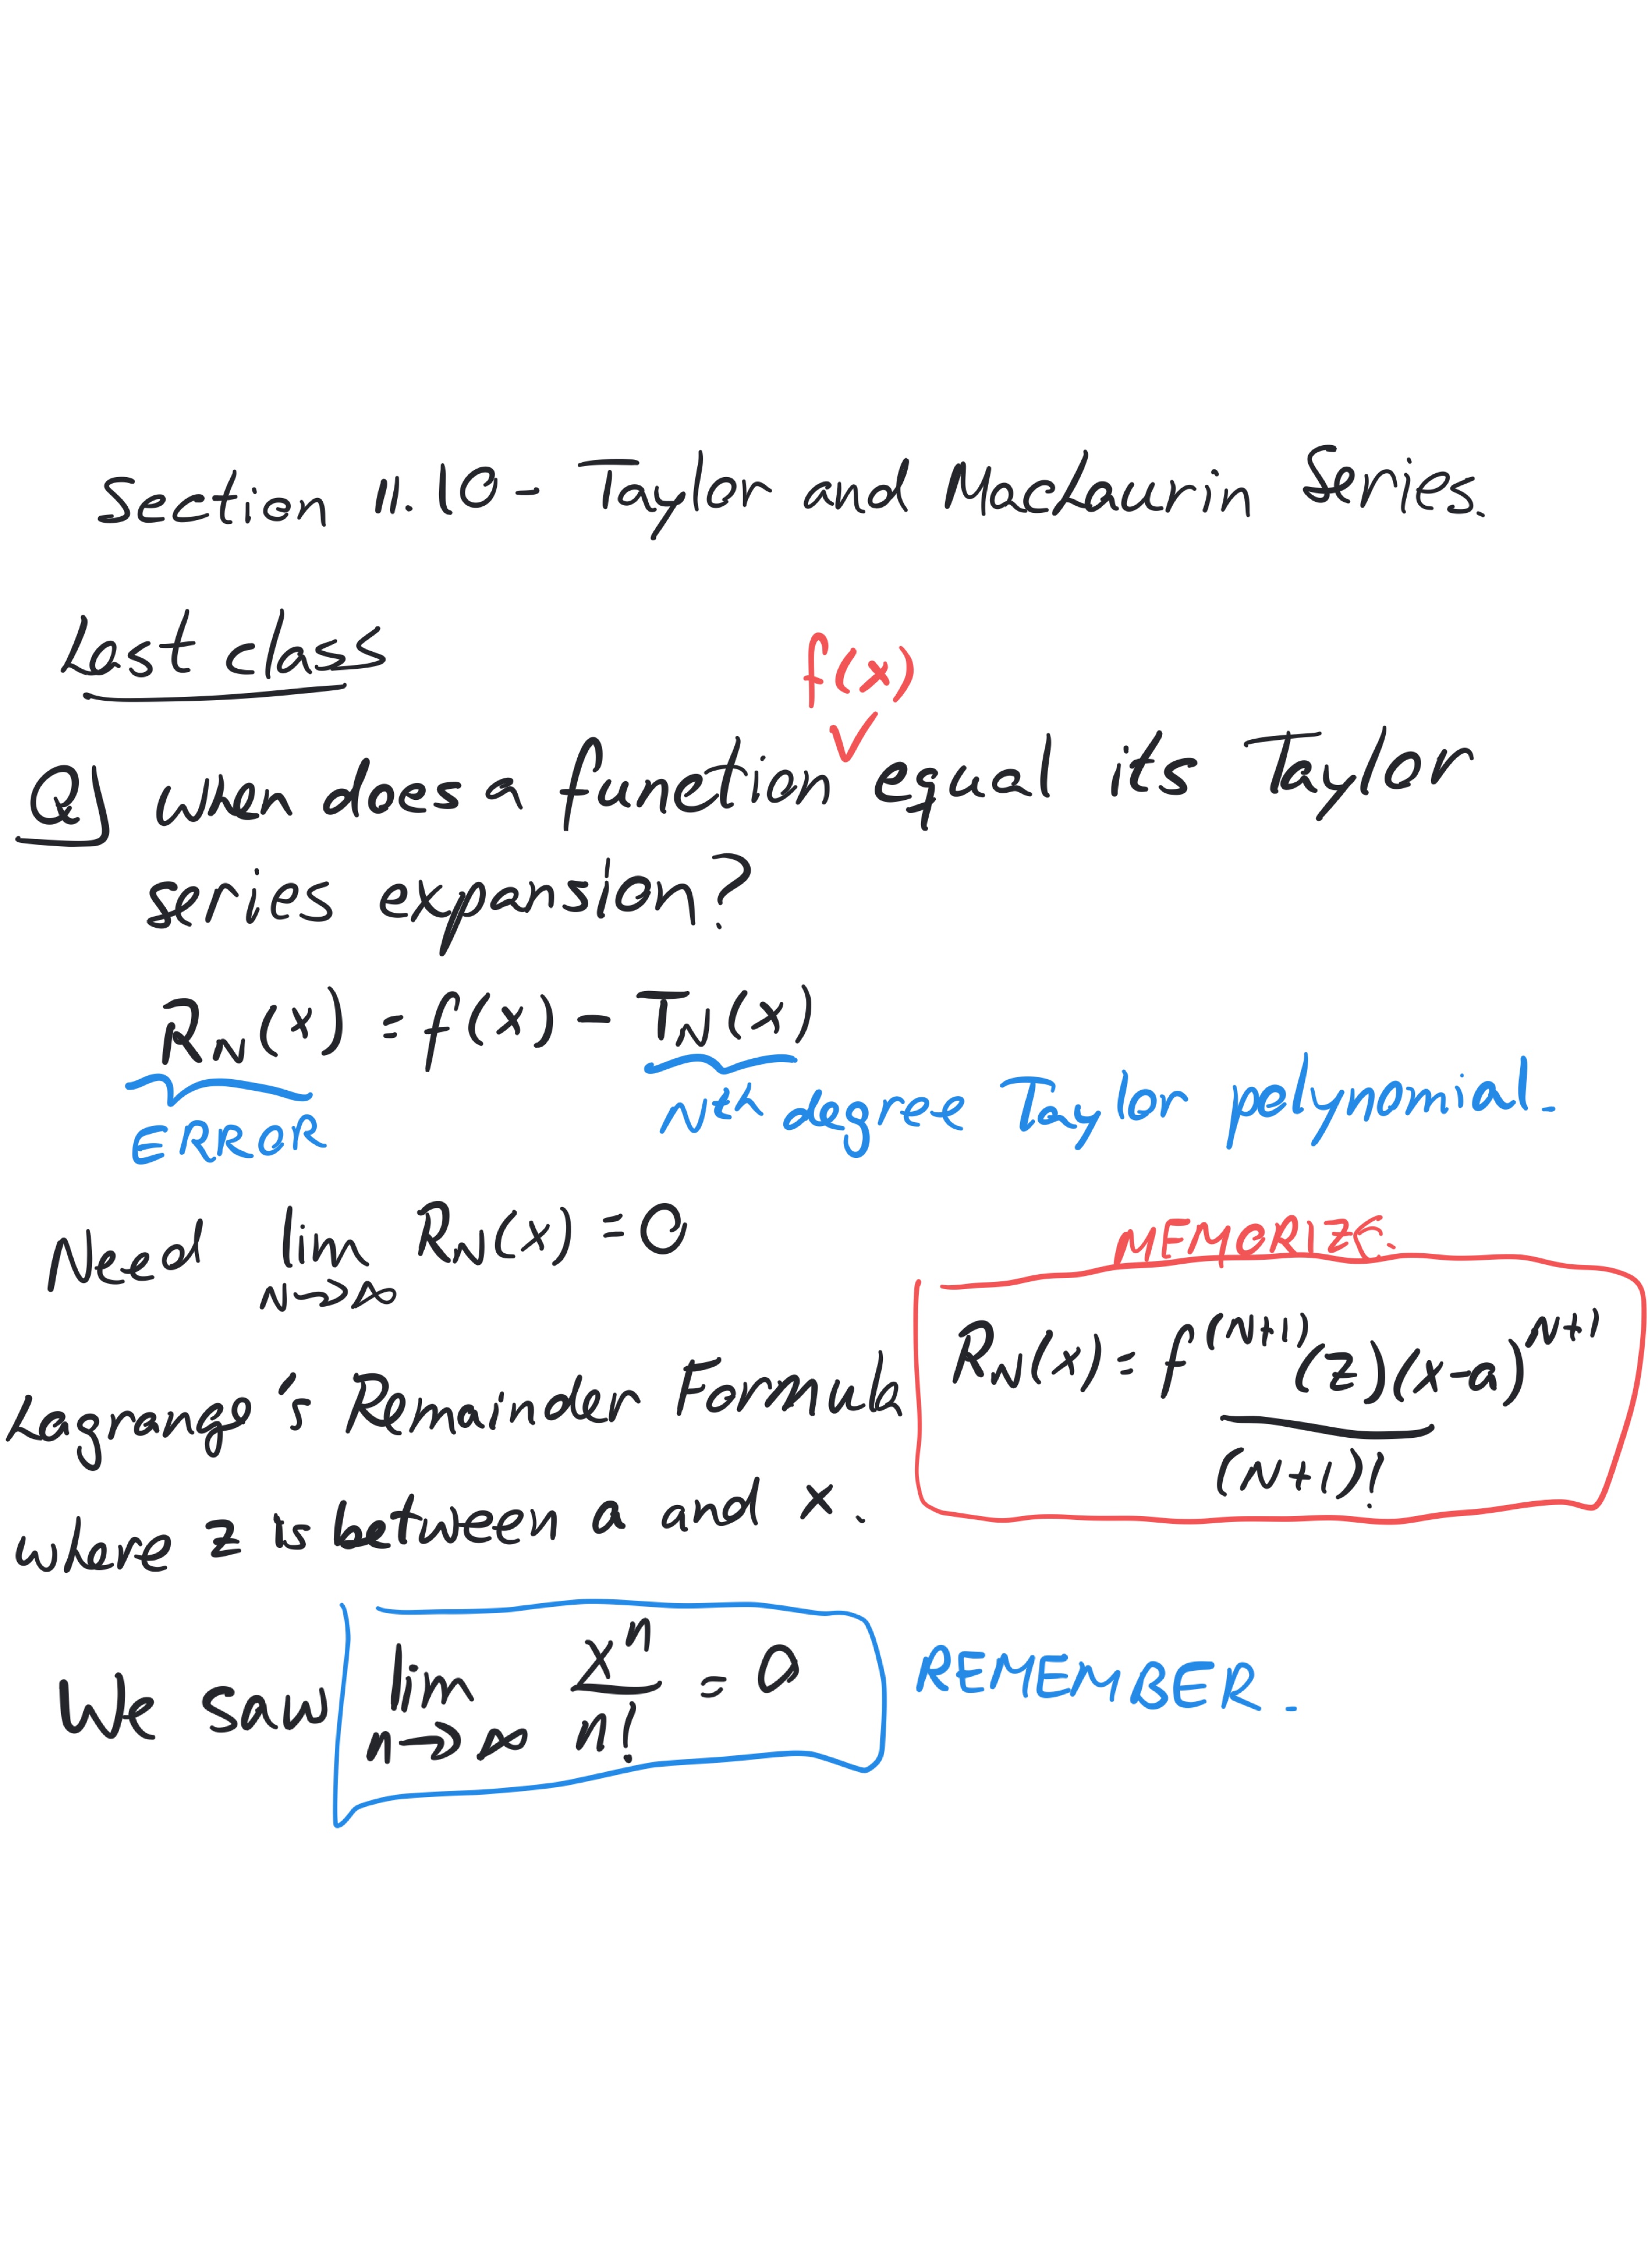 Section 11.10 - Taylor and Maclaurin Series.
Last class
f(x)
Q when does a function equal its Taylor
series expansion?
R_N(x) = f(x) - T_N(x)
ERROR
Nth degree Taylor polynomial.
Need lim N→∞ R_N(x) = 0
MEMORIZE.
Lagrange's Remainder Formula
R_N(x) = f^(N+1)(z)(x-a)^N+1 / (N+1)!
where z is between a and x.
We saw lim n→∞ x^n / n! = 0 REMEMBER.